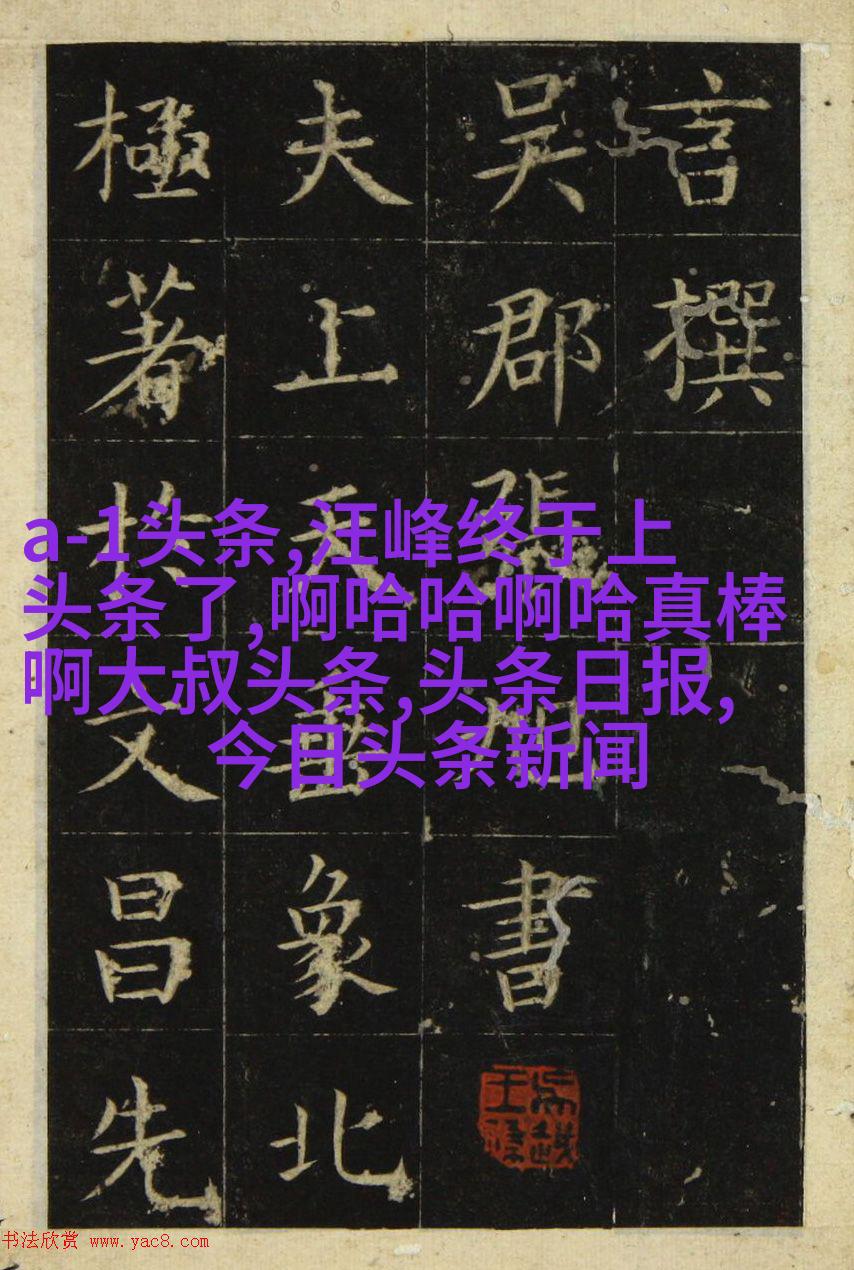 言撰
吳郡張旭書
夫上天垂象北
極著扵文昌先
a-1头条,汪峰终于上
头条了,啊哈哈啊哈真棒
啊大叔头条,头条日报,
今日头条新闻
书法欣赏 www.yac8.com